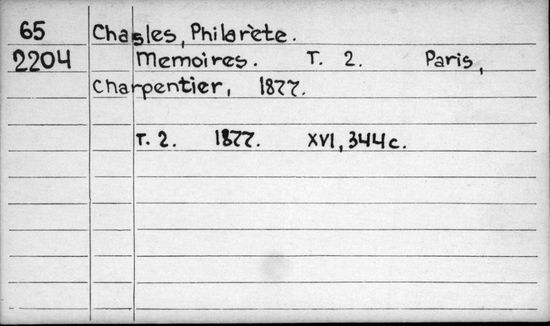 65 Chasles, Philarète.
2204 Memoires. T. 2. Paris,
Charpentier, 1877.
T. 2. 1877. XVI, 344 c.